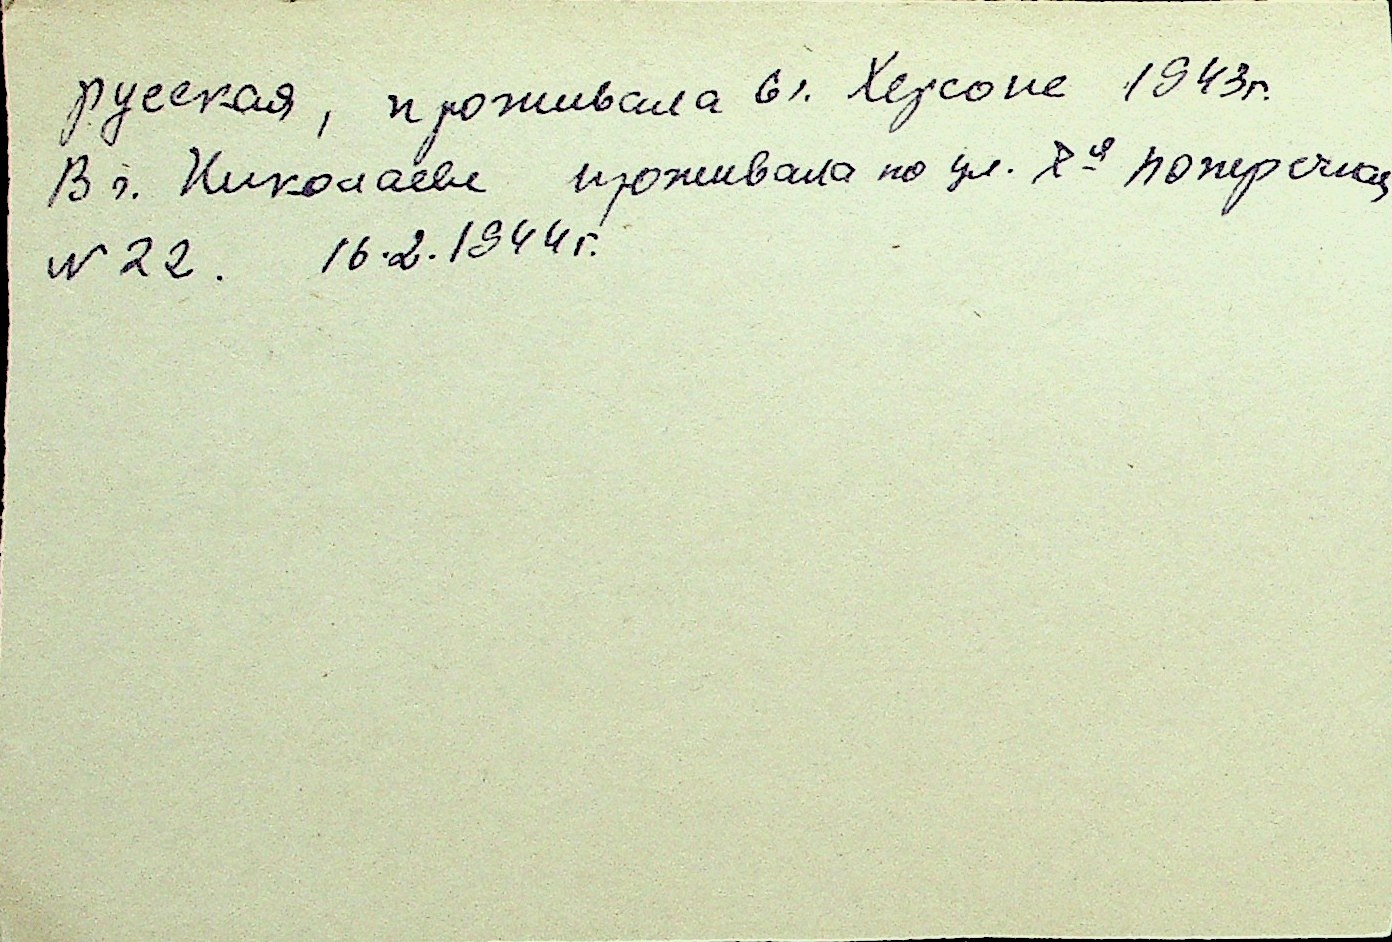 русская, проживала в г. Херсоне 1943г.
В г. Николаеве проживала по ул. X-я Поперечная
N 22. 16.2.1944г.